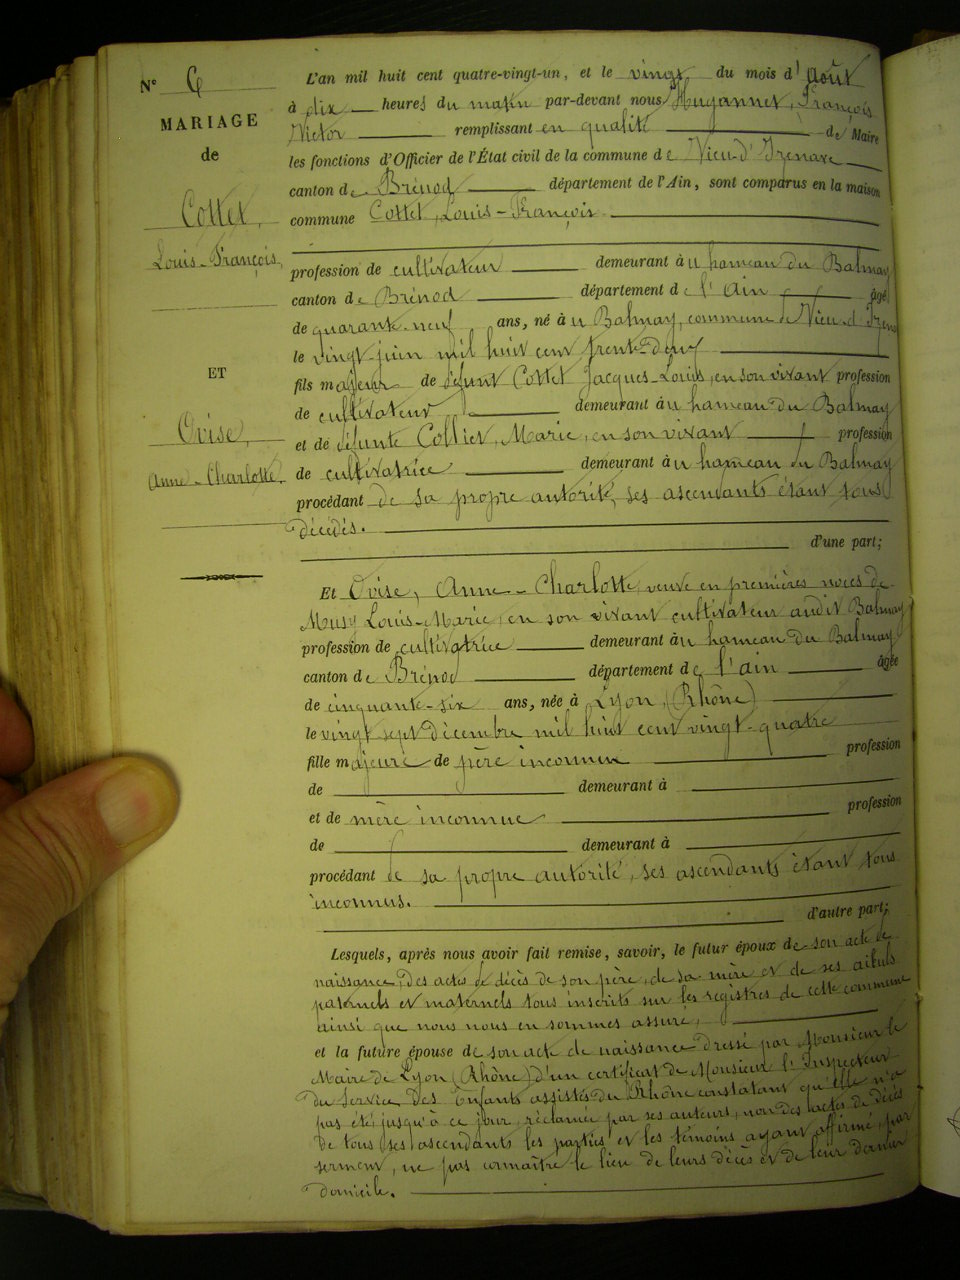 N° 6
MARIAGE
de
Cottet,
Louis-François,
ET
Ovise,
Anne-Charlotte.
L'an mil huit cent quatre-vingt-un, et le vingt du mois d'Août
à dix heures du matin par-devant nous Hugonnet, François
Victor remplissant en qualité de Maire
les fonctions d'Officier de l'État civil de la commune de Vieu-d'Izenave
canton de Brénod département de l'Ain, sont comparus en la maison
commune Cottet, Louis-François
profession de cultivateur demeurant au hameau du Balmay
canton de Brénod département de l'Ain âgé
de quarante-neuf ans, né au Balmay, commune de Vieu-d'Izen
le vingt juin mil huit cent trente-deux
fils majeur de défunt Cottet Jacques-Louis, en son vivant profession
de cultivateur demeurant au hameau du Balmay
et de défunte Collet, Marie, en son vivant profession
de cultivatrice demeurant au hameau du Balmay
procédant de sa propre autorité, ses ascendants étant tous
décédés.
d'une part;
Et Ovise, Anne-Charlotte, veuve en premières noces de
Musy Louis-Marie, en son vivant cultivateur audit Balmay
profession de cultivatrice demeurant au hameau du Balmay
canton de Brénod département de l'ain âgée
de cinquante-six ans, née à Lyon, (Rhône)
le vingt sept décembre mil huit cent vingt-quatre
fille majeure de père inconnu profession
de demeurant à
et de mère inconnue profession
de demeurant à
procédant de sa propre autorité, ses ascendants étant tous
inconnus.
d'autre part;
Lesquels, après nous avoir fait remise, savoir, le futur époux de son acte de
naissance, des actes de décès de son père, de sa mère et de ses aïeuls
paternels et maternels tous inscrits sur les registres de cette commune
ainsi que nous nous en sommes assuré,
et la future épouse de son acte de naissance dressé par Monsieur le
Maire de Lyon (Rhône) d'un certificat de Monsieur l'Inspecteur
du Service des Enfants assistés du Rhône constatant qu'elle n'a
pas été, jusqu'à ce jour, réclamée par ses auteurs, non des actes de décès
de tous ses ascendants les parties et les témoins ayant affirmé, par
serment, ne pas connaître le lieu de leurs décès et de leur dernier
domicile.